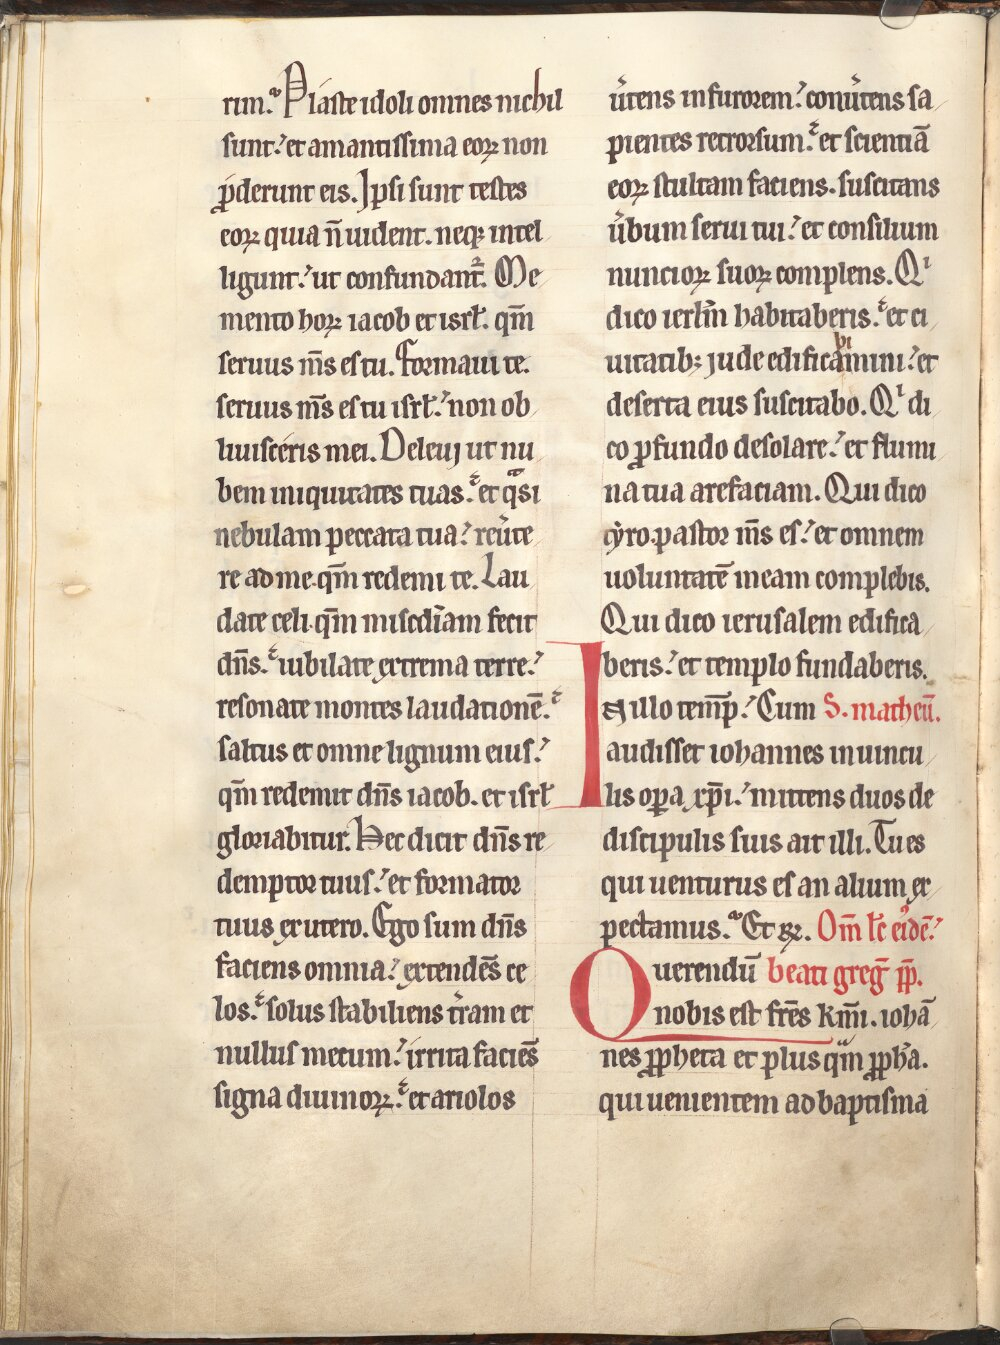 rim. Plaste idoli omnes nichil
sunt. et amantissima eoꝝ non
ꝓderunt eis. Ipsi sunt testes
eoꝝ quia n̄ uident. neqꝫ intel
ligunt. ut confundant᷑. Me
mento hoꝝ iacob et isrł. qm̄
seruus m̄s es tu. Formaui te.
seruus m̄s es tu isrł. non ob
liuisceris mei. Deleuj ut nu
bem iniquitates tuas. et qᷓsi
nebulam peccata tua. reu̓te
re ad me. qm̄ redemi te. Lau
date celi. qm̄ misc̄diam fecit
dn̄s. iubilate extrema terre.
resonate montes laudationē.
saltus et omne lignum eius.
qm̄ redemit dn̄s iacob. et isrł
gloriabitur. Hec dicit dn̄s re
demptor tuus. et formator
tuus ex utero. Ego sum dn̄s
faciens omnia. extendēs ce
los. solus stabiliens t̓ram et
nullus mecum. irrita faciēs
signa diuinoꝝ. et ariolos
u̓tens in furorem. conu̓tens sa
pientes retrorsum. et scientiā
eoꝝ stultam faciens. suscitans
u̓bum serui tui. et consilium
nuncioꝝ suoꝝ complens. Qⁱ
dico ierlm̄ habitaberis. et ci
uitatibꝫ jude edificabimini. et
deserta eius suscitabo. Qⁱ di
co ꝓfundo desolare. et flumi
na tua arefaciam. Qui dico
cẏro. pastor m̄s es. et omnem
uoluntatē meam complebis.
Qui dico ierusalem edifica
beris. et templo fundaberis.
In illo temp̄. Cum S. matheū.
audisset iohannes in uincu
lis opa xp̄i. mittens duos de
discipulis suis ait illi. Tu es
qui uenturus es an alium ex
pectamus. Et ꝝ. Om̄ lc̄ eiꝰdē.
Querendū beati greḡ pp̄.
nobis est fr̄es km̄i. iohā
nes ꝓpheta et plus qm̄ ꝓph̓a.
qui uenientem ad baptisma